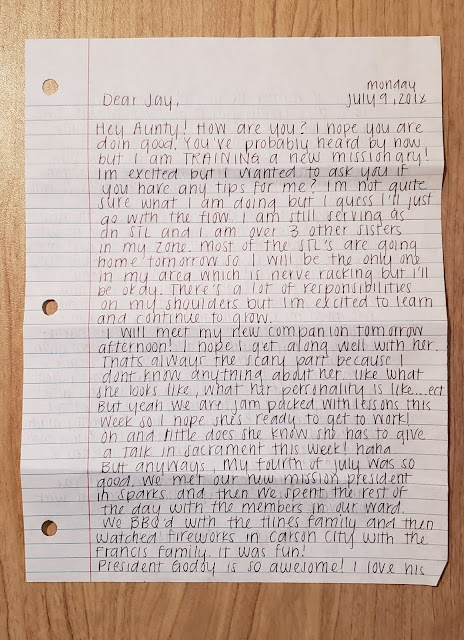 monday
Dear Jay,
July 9, 2018
Hey Aunty! How are you? I hope you are
doin good. You've probably heard by now
but I am TRAINING a new missionary!
Im excited but I wanted to ask you if
you have any tips for me? Im not quite
sure what I am doing but I guess I'll just
go with the flow. I am still serving as
an STL and I am over 3 other sisters
in my zone. Most of the STL's are going
home tomorrow so I will be the only one
in my area which is nerve racking but I'll
be okay. There's a lot of responsibilities
on my shoulders but Im excited to learn
and continue to grow.
I will meet my new companion tomorrow
afternoon! I hope I get along well with her.
Thats always the scary part because I
dont know anything about her. Like what
she looks like, what her personality is like....ect
But yeah we are jam packed with lessons this
week so I hope she's ready to get to work!
oh and little does she know she has to give
a talk in sacrament this week! haha
But anyways, My fourth of July was so
good. We met our new mission president
in Sparks and then we spent the rest of
the day with the members in our ward.
We BBQ'd with the Hines family and then
watched fireworks in Carson City with the
Francis family. It was fun!
President Godoy is so awesome! I love his